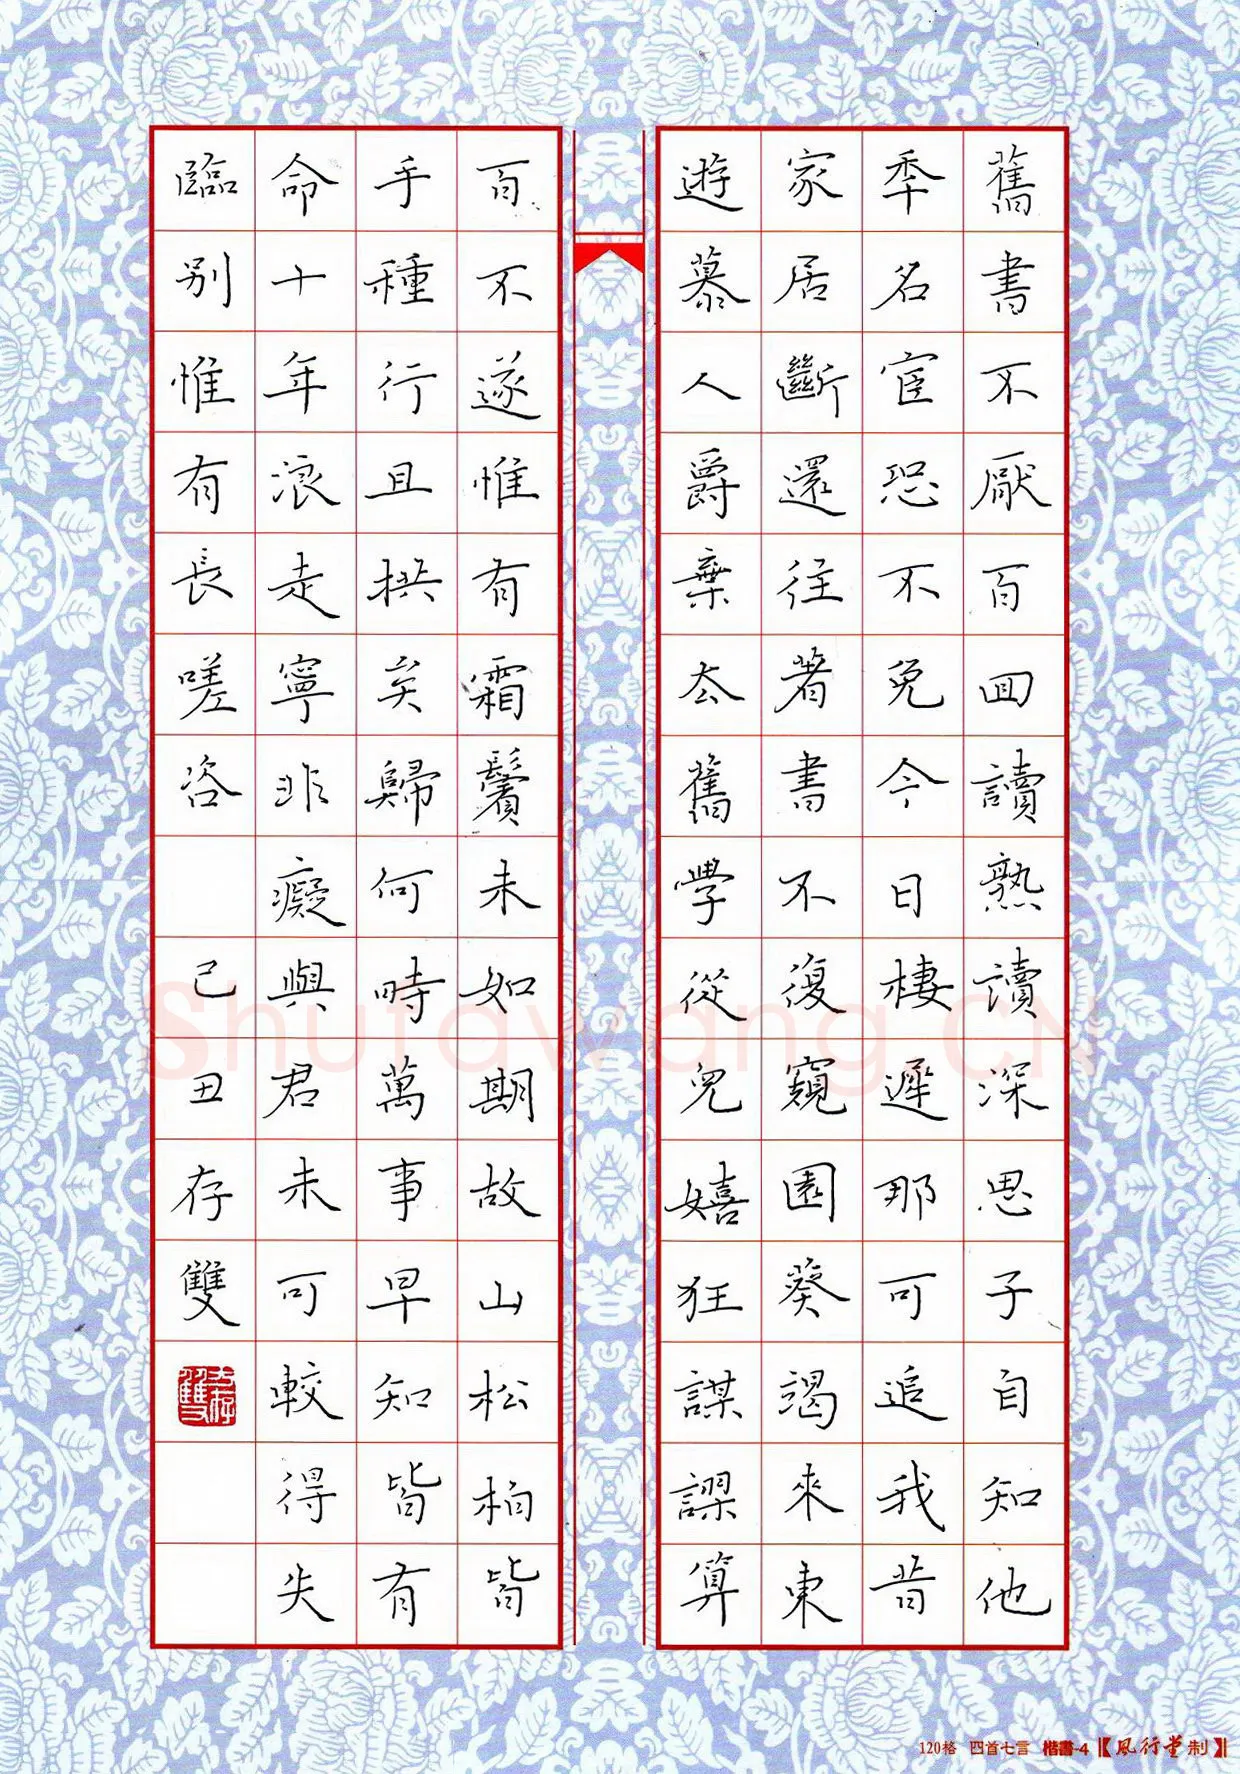 舊書不厭百回讀熟讀深思子自知他
秊名宦恐不免今日棲遲那可追我昔
家居斷還往著書不復窺園葵朅來東
遊慕人爵棄去舊學從兒嬉狂謀謬算
百不遂惟有霜鬢來如期故山松柏皆
手種行且拱矣歸何時萬事早知皆有
命十年浪走寧非癡與君未可較得失
臨別惟有長嗟咨 己丑存雙
120格 四首七言 楷書-4【風行堂制】
Shufawang.CN